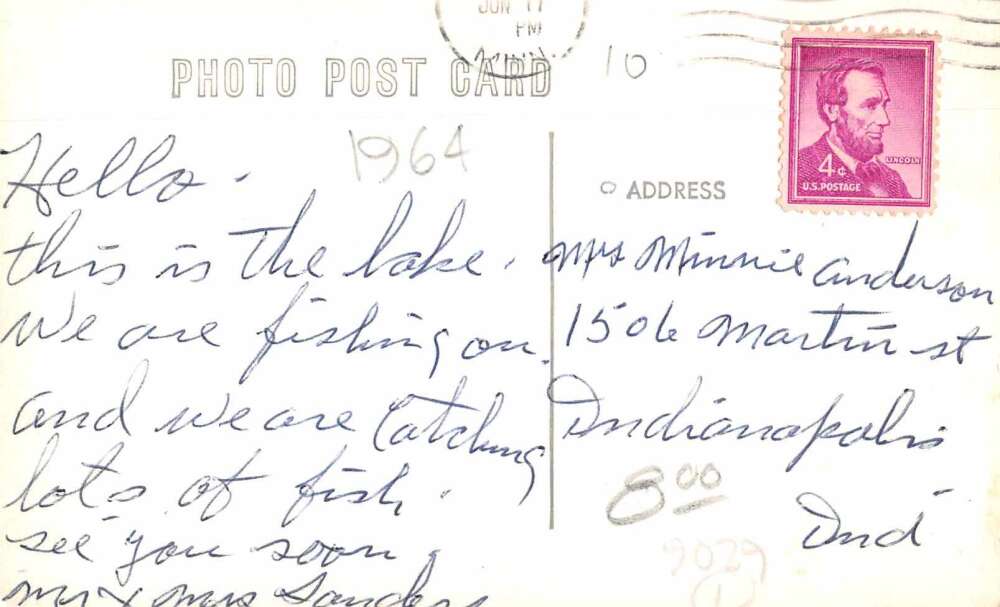 JUN 17
PM
MINN.
PHOTO POST CARD
10
1964
Hello.
this is the lake.
We are fishing on.
and we are Catching
lots of fish.
see you soon.
mr & mrs Sanders
ADDRESS
LINCOLN
4¢
U.S. POSTAGE
Mrs Minnie anderson
1506 Martin st
Indianapolis
Ind
8.00
9029
1